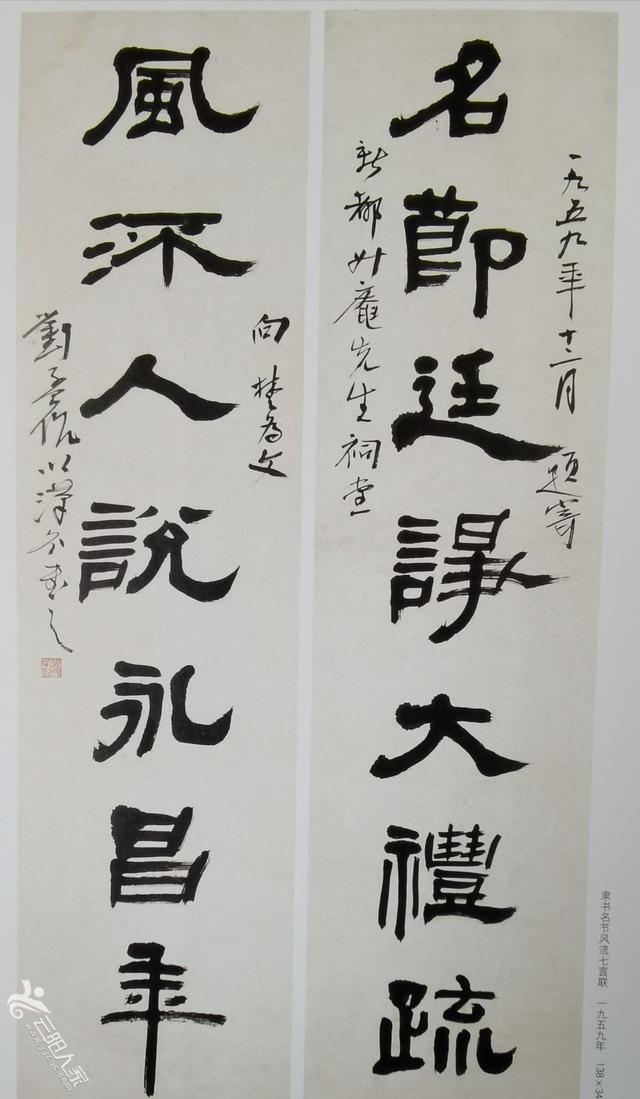 一九五九年十二月 題寄
名節廷諍大禮疏
新都升庵先生祠堂
向楚為文
風流人說永昌年
劉孟伉以漢分書之
隶书名节风流七言联 一九五九年 138×34
云阳人家